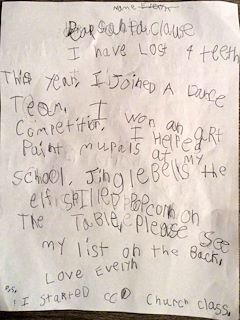 Dear santa clause
I have Lost 4 teeth
This year, I Joined A Dance
Team. I won an art
Competition. I Helped
Paint murals at my
school. Jingle Bells the
elf spilled popcorn on
The Table. Please see
my list on the Back.
Love Evelyn
P.S.
I started CCD Church class.